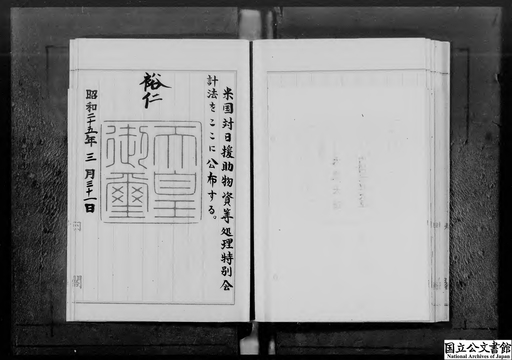 米国対日援助物資等処理特別会
計法をここに公布する。
裕仁
天皇
御璽
昭和二十五年三月三十一日
国立公文書館
National Archives of Japan